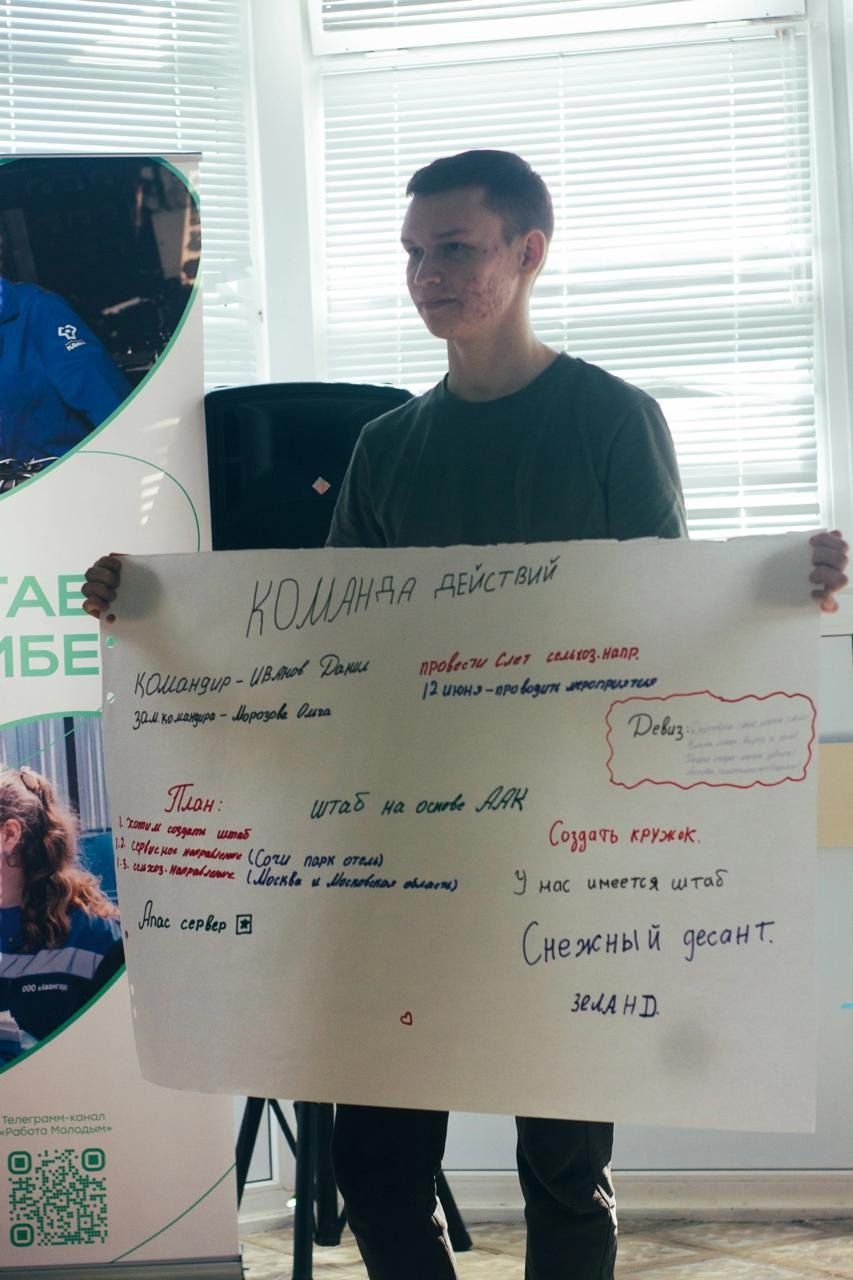 КОМАНДА ДЕЙСТВИЙ
Командир - Иванов Данил
Зам. командира - Морозова Ольга
провести Слет сельхоз. напр.
12 июня - проводить мероприятия
Девиз:
План:
1. Хотим создать штаб
1.2. сервисное направление (Сочи парк отель)
1.3. сельхоз. направление (Москва и Московская область)
штаб на основе ААК
Создать кружок.
У нас имеется штаб
Снежный десант.
ЗЕЛАНD.
Апас сервер
ТАЕ
ИБЕ
ООО «Авангард
Телеграмм-канал
«Работа Молодым»